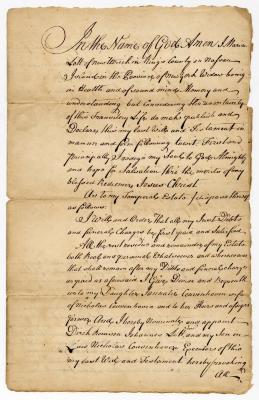 In the Name of God Amen I Maria
Lott of New Utrecht in Kings County on Nassau
Island in the Province of New York Widow being
in Health and of sound mind Memory and
understanding but Considering the uncertainty
of this Transitory Life do make publish and
Declare this my Last Will and Testament in
manner and form following to wit First and
principally I resign my Soul to God Almighty
and hope for Salvation thro the merits of my
blessed Redeemer Jesus Christ
As to my Temporal Estate I dispose thereof
as follows
I Will and Order that all my Just Debts
and funeral Charges be first paid and Satisfied
All the rest residue and remainder of my Estate
both Real and personal whatsoever and wheresoever
that shall remain after my Debts and funeral Charges
as paid as aforesaid I Give Devise and Bequeath
unto my Daughter Covenhoven wife
of Nicholas Covenhoven and to her Heirs and assigns
forever And I hereby Nominate and appoint
Dirck Remsen Johannes Lott and my Son in
Law Nicholas Covenhoven Executors of this
my Last Will and Testament hereby revoking
all